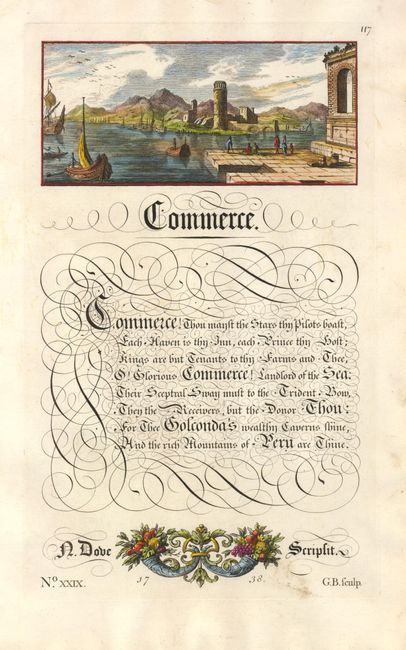 117
Commerce.
Commerce! Thou mayst the Stars thy Pilots boast,
Each Haven is thy Inn, each Prince thy Host;
Kings are but Tenants to thy Farms and Thee,
O! Glorious Commerce! Landlord of the Sea:
Their Sceptral Sway must to the Trident Bow,
They the Receivers, but the Donor Thou:
For Thee Golconda's wealthy Caverns shine,
And the rich Mountains of Peru are Thine.
N. Dove Scripsit.
No. XXIX. 17 38. G.B. sculp.